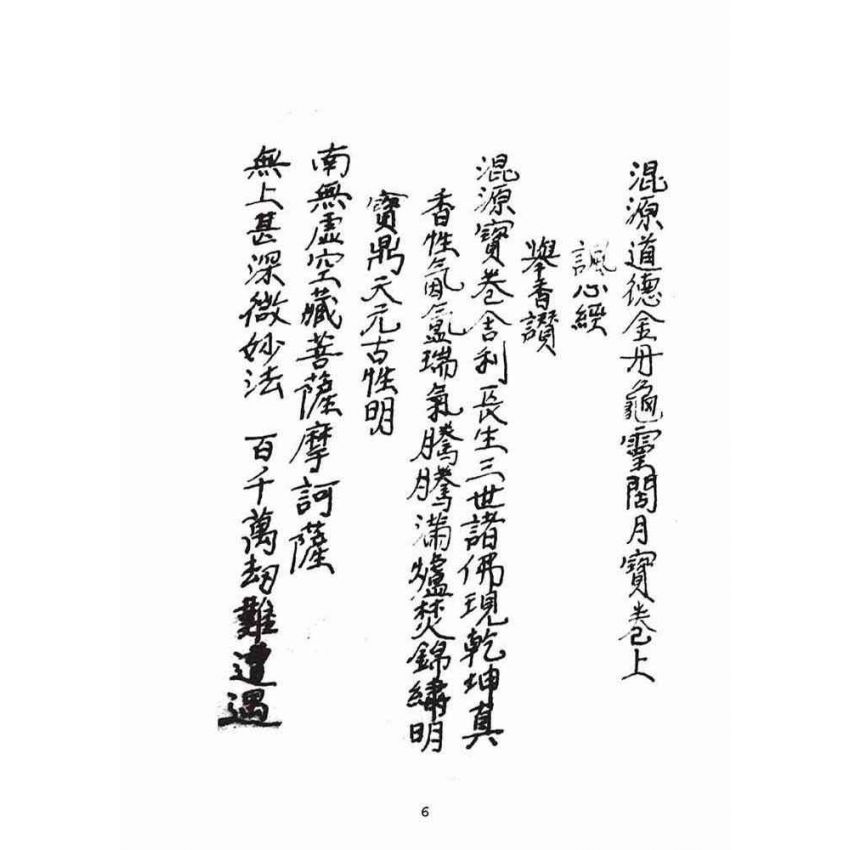 混源道德金丹龜靈闊月寶卷上
諷心經
舉香讚
混源寶卷舍利長生三世諸佛現乾坤真
香性氤氳瑞氣騰騰滿爐焚錦繡明
寶鼎天元古性明
南無虛空藏菩薩摩訶薩
無上甚深微妙法 百千萬劫難遭遇
6